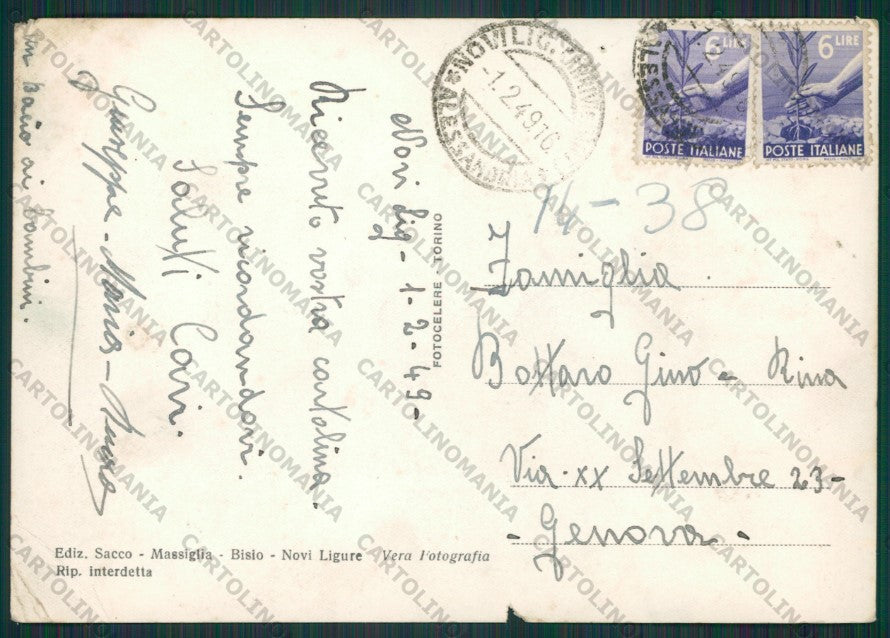 Novi Lig - 1 - 2 - 49 -
Ricevuto vostra cartolina.
Sempre ricordandovi.
Saluti Cari.
Giuseppe - Maria -
un bacio ai bambini.
NOVI LIG.
-1.2.49
ALESSANDRIA
6 LIRE
POSTE ITALIANE
6 LIRE
POSTE ITALIANE
14 - 38
Famiglia
Bottaro Gino e Rina
Via XX Settembre 23 -
- Genova -
FOTOCELERE TORINO
Ediz. Sacco - Massiglia - Bisio - Novi Ligure Vera Fotografia
Rip. interdetta
CARTOLINOMANIA